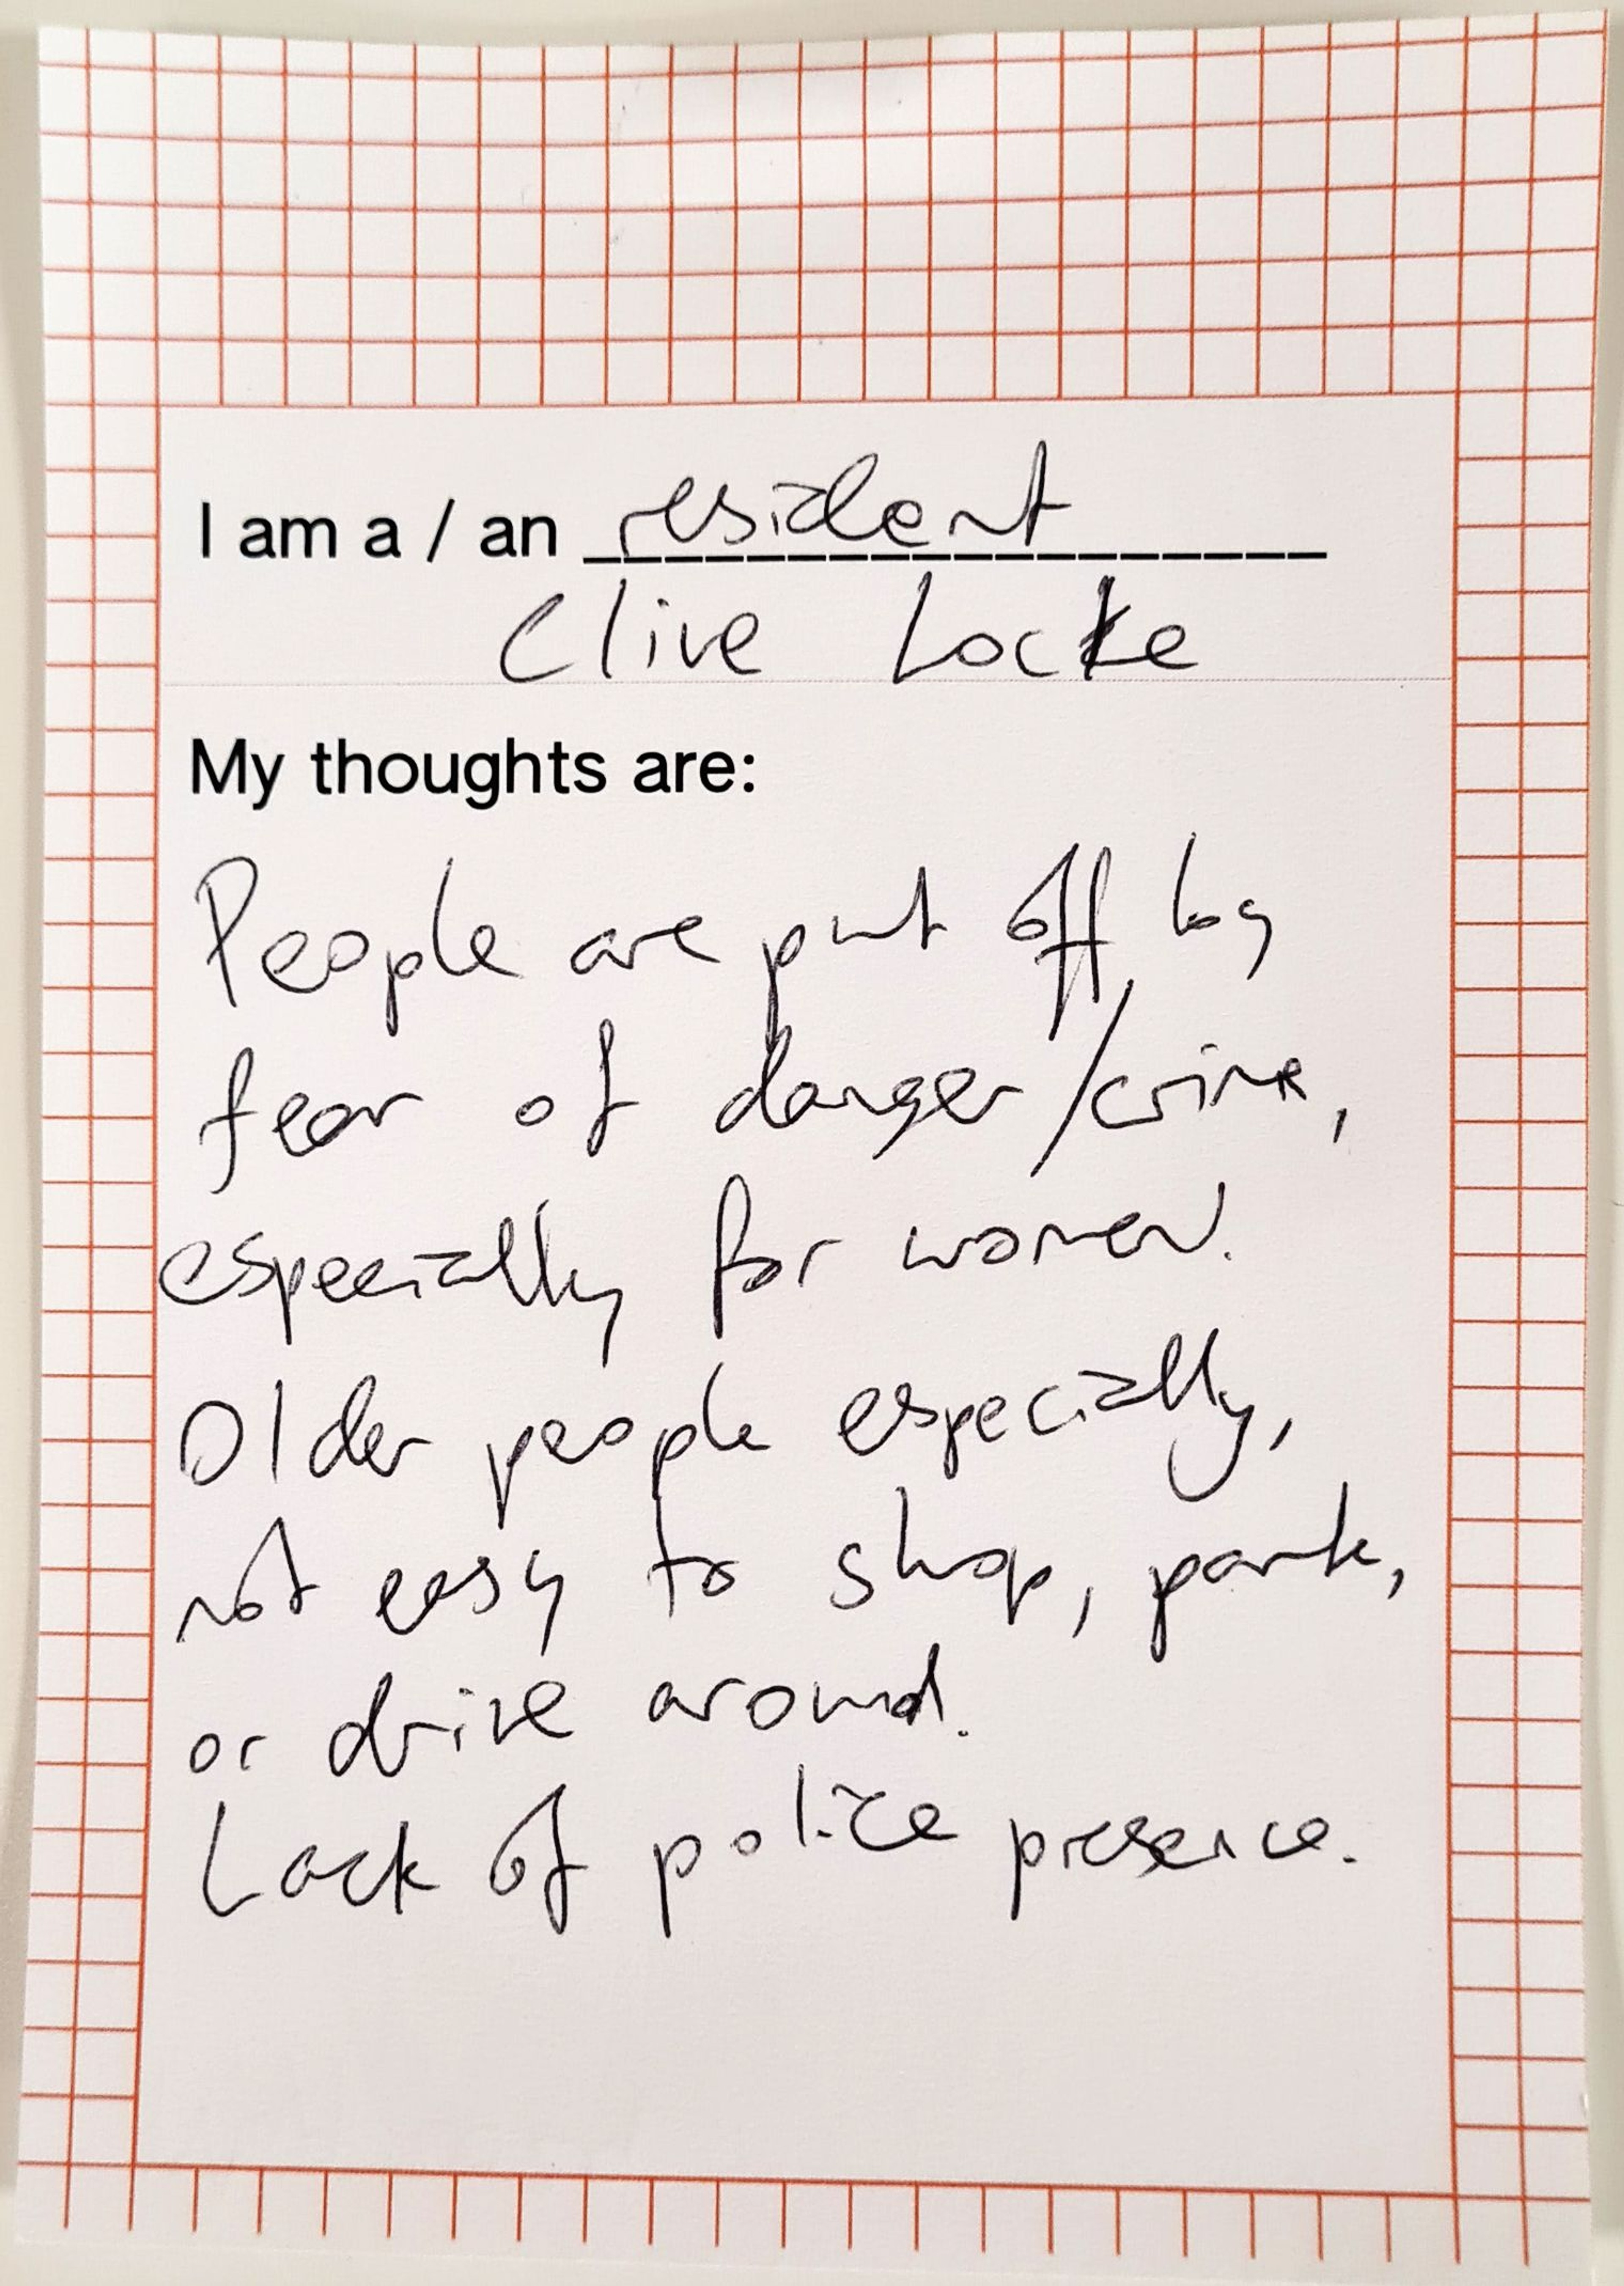 I am a / an resident
Clive Locke
My thoughts are:
People are put off by
fear of danger/crime,
especially for women.
Older people especially,
not easy to shop, park,
or drive around.
Lack of police presence.